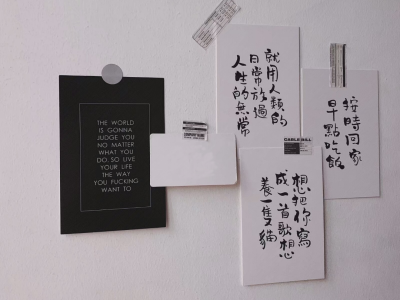 THE WORLD
IS GONNA
JUDGE YOU
NO MATTER
WHAT YOU
DO. SO LIVE
YOUR LIFE
THE WAY
YOU FUCKING
WANT TO
就用人類的
日常放過
人生的無常
按時回家
早點吃飯
想把你寫
成一首歌想
養一隻貓